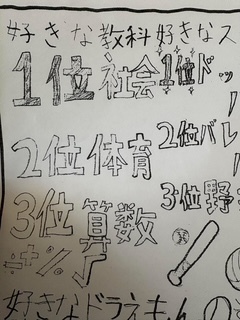 好きな教科
1位 社会
2位 体育
3位 算数
÷+%√
好きなス
1位 ドッ
2位 バレ
3位 野
好きなドラえもんの